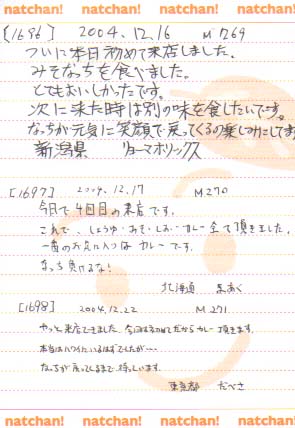 natchan! natchan! natchan! natchan!
[1696] 2004.12.16 M269
ついに本日初めて来店しました。
みそなっちを食べました。
とてもおいしかったです。
次に来た時は別の味を食したいです。
なっちが元気に笑顔で戻ってくるの楽しみにしてます
新潟県 リョーマホリックス
[1697] 2004.12.17 M270
今日で4回目の来店です。
これで、しょうゆ・みそ・しお・カレー全て頂きました。
一番のお気に入りは カレーです。
なっち負けるな!
北海道
[1698] 2004.12.22 M271
やっと来店できました。今回は初めてだからカレー頂きます。
本当はハワイにいるはずでしたが…
なっちが戻ってくるまで待っています。
東京都 だべさ
natchan! natchan! natchan! natchan!